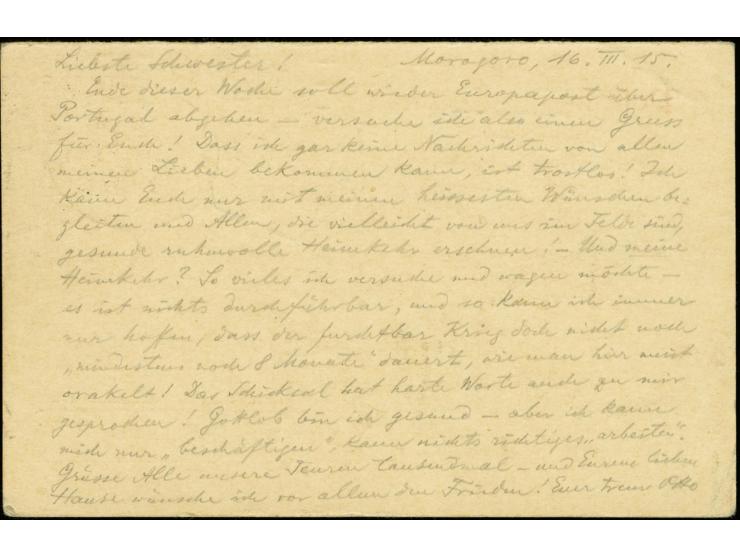 Liebste Schwester! Morogoro, 16. III. 15.
Ende dieser Woche soll wieder Europapost über
Portugal abgehen – versuche ich also einen Gruss
für Euch! Dass ich gar keine Nachrichten von allen
meinen Lieben bekommen kann, ist trostlos! Ich
kann Euch nur mit meinen heissesten Wünschen be-
gleiten und Allen, die vielleicht von uns im Felde sind,
gesunde ruhmvolle Heimkehr ersehnen! – Und meine
Heimkehr? So vieles ich versuche und wagen möchte –
es ist nichts durchführbar, und so kann ich immer
nur hoffen, dass der furchtbar Krieg doch nicht noch
„mindestens noch 8 Monate" dauert, wie man hier meist
orakelt! Das Schicksal hat harte Worte auch zu mir
gesprochen! Gottlob bin ich gesund – aber ich kann
mich nur „beschäftigen", kann nichts richtiges „arbeiten".
Grüsse Alle unsere Teuren tausendmal – und Eurem lieben
Hause wünsche ich vor allem den Frieden! Euer treuer Otto